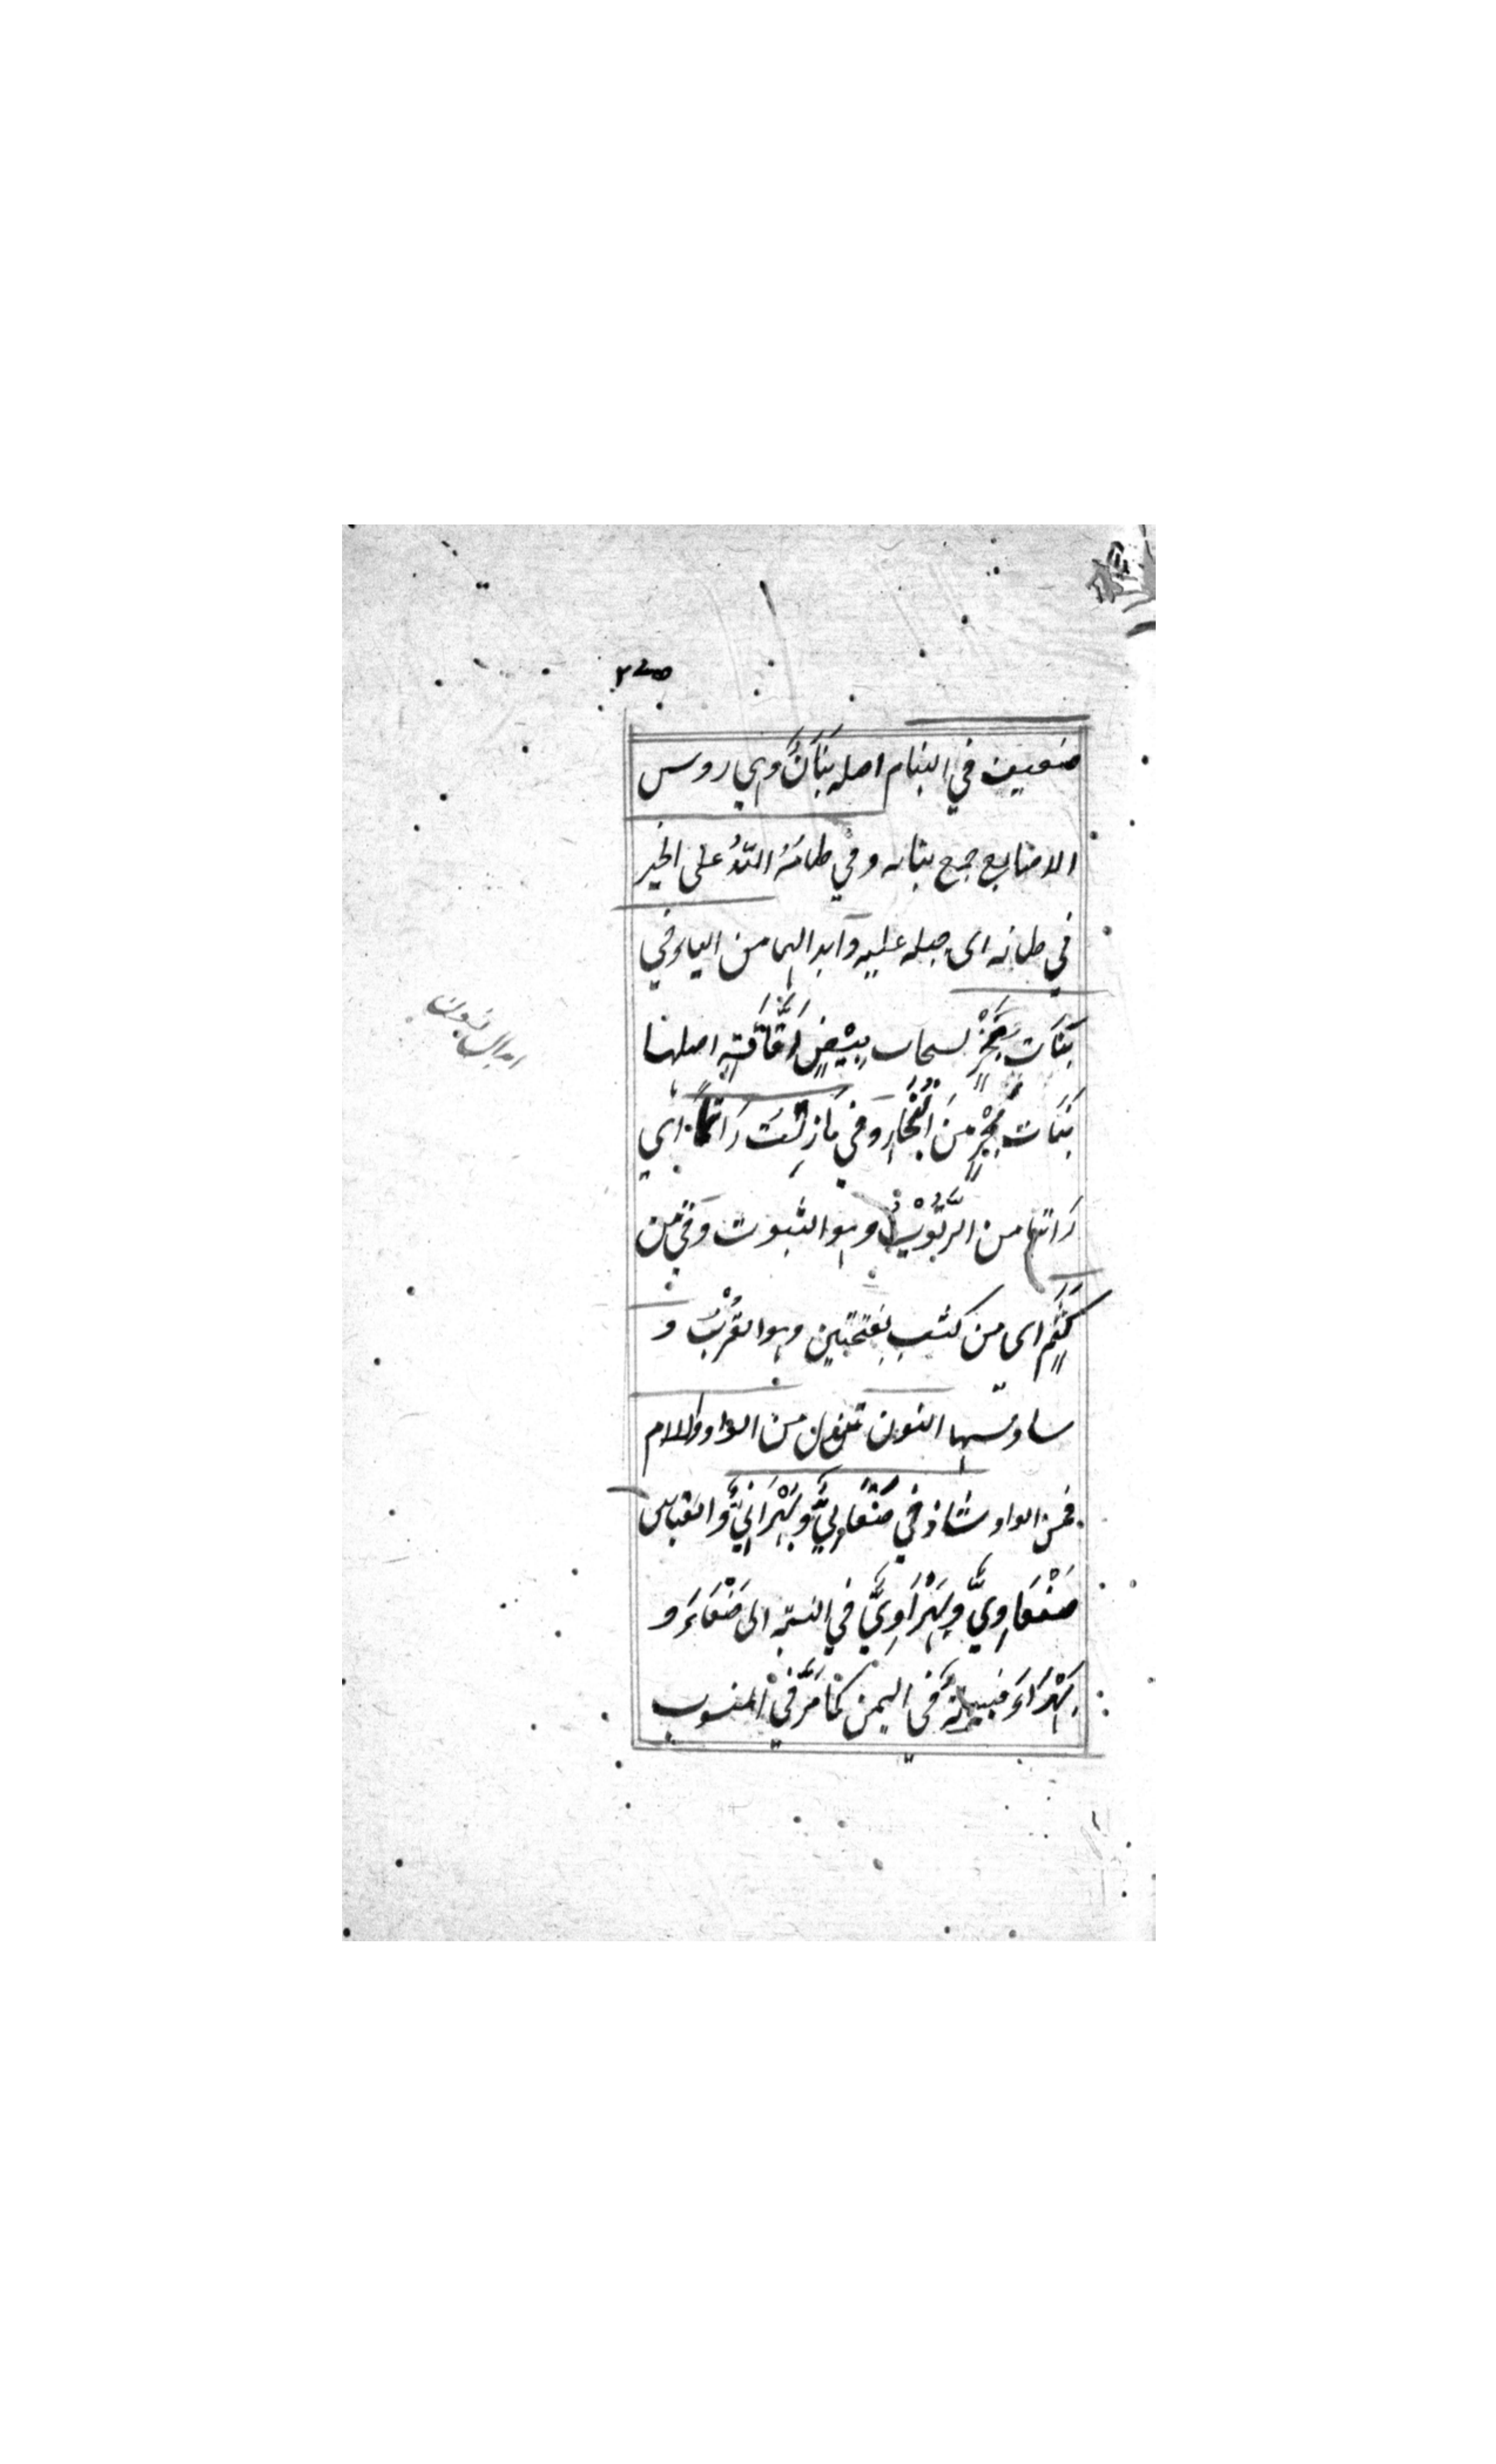 ضعيف في البنام اصله بَنَانٌ وهي روس
الاصابع جمع بنانه وفي طامَهُ اللّهُ على الخير
في طانه اى جبله عليه وابدالها من الباء في
بَنَاتِ مَخْرٍ لسحاب بِيْضٍ رَقَّاقَةٍ اصلها
بَنَات بُخْرٍ مِنَ الْبُخَارِ وَفي مَا زِلْتَ رَاتمًا اي
رَاتبا من الرُّتُوْبِ وهو الثبوت وَفي من
كَثَمٍ اى من كثب بفتحتين وهو القُرْبُ و
سادسها النون تبدل من الواو واللام
فمن الواو شاذ في صَنْعَانِيٌّ وبَهْرَانِيٌّ وَالقياس
صَنْعَاوِيٌّ وبَهْرَاوِيٌّ في النسبة الى صَنْعَاءَ و
بَهْرَاءَ قبيلةٌ في اليمن كمَا مَرَّ في المنسوب
ابدال نون